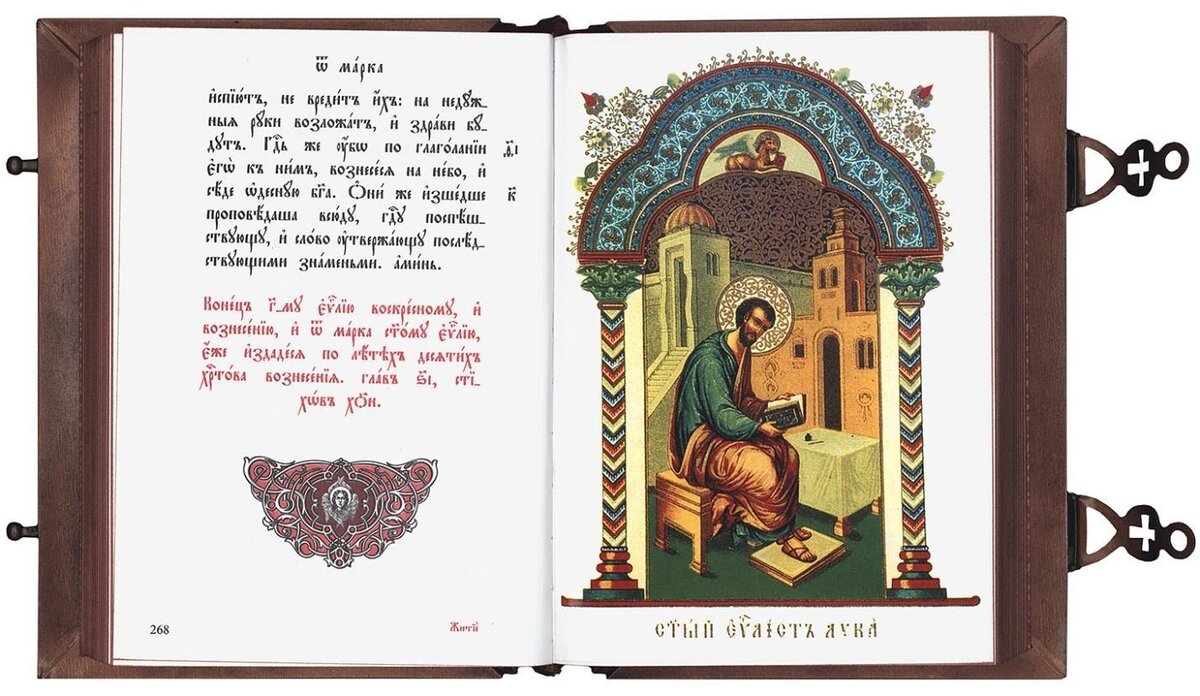 Ѿ ма́рка
и҆спїю́тъ, не вреди́тъ и҆́хъ: на неду́ж_
ныѧ рꙋ́ки возложа́тъ, и҆ здра́ви бꙋ_
дꙋтъ. Гдⷭ҇ь же ᲂу҆́бѡ по глаго́ланїи
є҆гѡ̀ къ ни̑мъ, вознесе́сѧ на не́бо, и҆
сѣ́де ѡ҆деснꙋ́ю бг҃а. Ѻ҆ни́ же и҆зше́дше
к҃
проповѣ́даша всю́дꙋ, гдⷭ҇ꙋ поспѣ́ш_
ствꙋющꙋ, и҆ сло́во ᲂу҆твержда́ющꙋ послѣ́д_
ствꙋющими зна́меньми. а҆ми́нь.
Коне́цъ г҃_мꙋ є҆ѵⷢ҇лїю воскре́сномꙋ, и҆
вознесе́нїю, и҆ ѿ ма́рка ст҃о́мꙋ є҆ѵⷢ҇лїю,
є҆́же и҆здаде́сѧ по лѣ́тѣхъ десѧти́хъ
хрⷭ҇то́ва вознесе́нїѧ. гла́въ ѕ҃і, сті_
хѡ́въ хѻ҃и.
268
Житїѐ
СТ҃ЫЙ ЕѴⷢ҇ЛІСТЪ ЛУКА